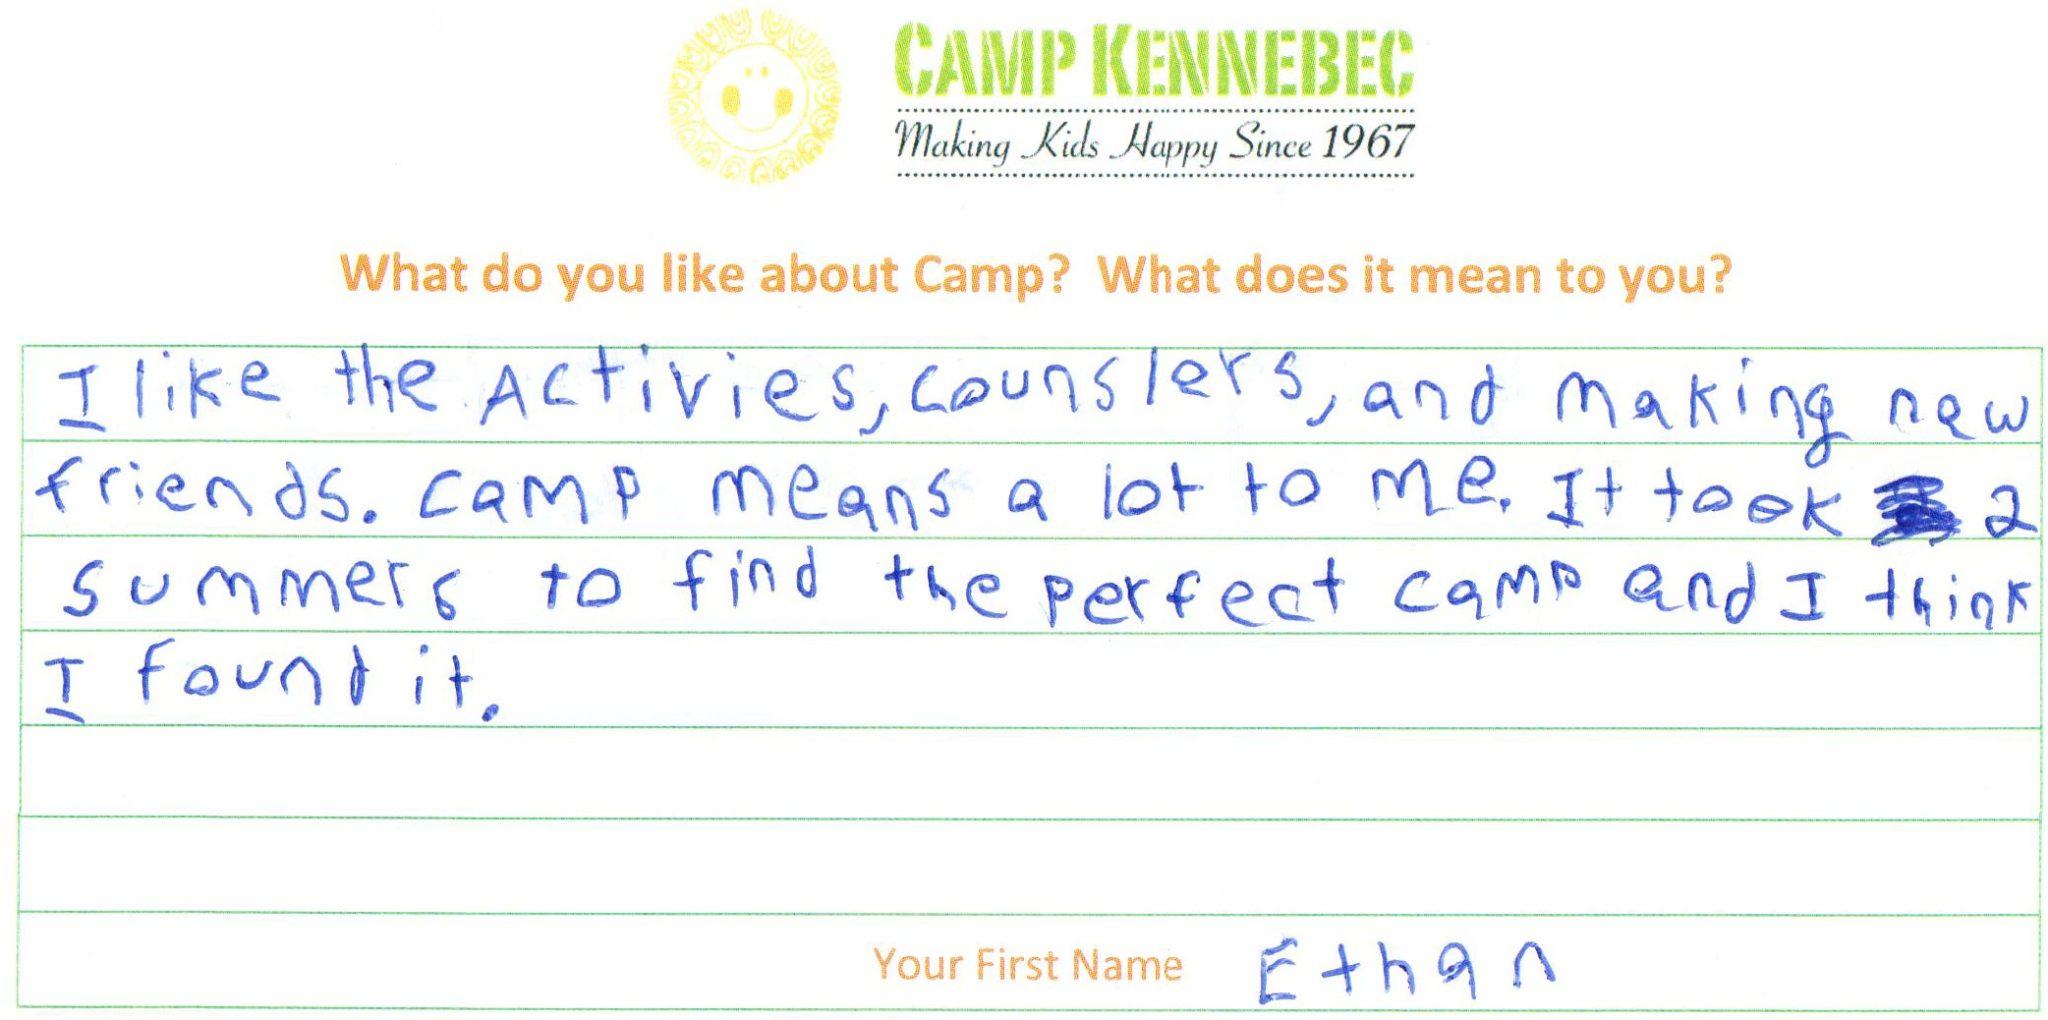 CAMP KENNEBEC
Making Kids Happy Since 1967
What do you like about Camp? What does it mean to you?
I like the Activies, counslers, and making new
friends. camp means a lot to me. It took 2
summers to find the perfect camp and I think
I found it.
Your First Name Ethan